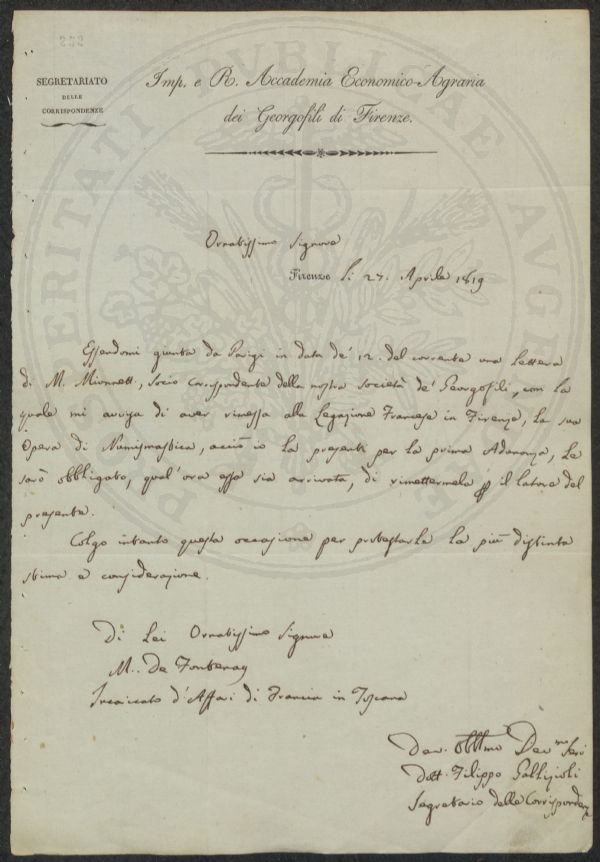 SEGRETARIATO
DELLE
CORRISPONDENZE
Imp. e R. Accademia Economico-Agraria
dei Georgofili di Firenze.
PROSPERITATI PUBLICAE AUGENDAE
Ornatissimo Signore
Firenze li 27. Aprile 1819
Essendomi giunta da Parigi in data de' 12. del corrente una lettera
di M. Mionnett, socio corrispondente della nostra società de' Georgofili, con la
quale mi avvisa di aver rimessa alla Legazione Francese in Firenze, la sua
Opera di Numismatica, acciò io la presenti per la prima Adunanza, Le
sarò obbligato, qual'ora essa sia arrivata, di rimettermela il latore del
presente.
Colgo intanto questa occasione per protestarle la più distinta
stima e considerazione.
Di Lei Ornatissimo Signore
M. De Fontenay
Incaricato d'Affari di Francia in Toscana
Dev. Obblmo
Dott. Filippo Gallizioli
Segretario delle Corrisponden